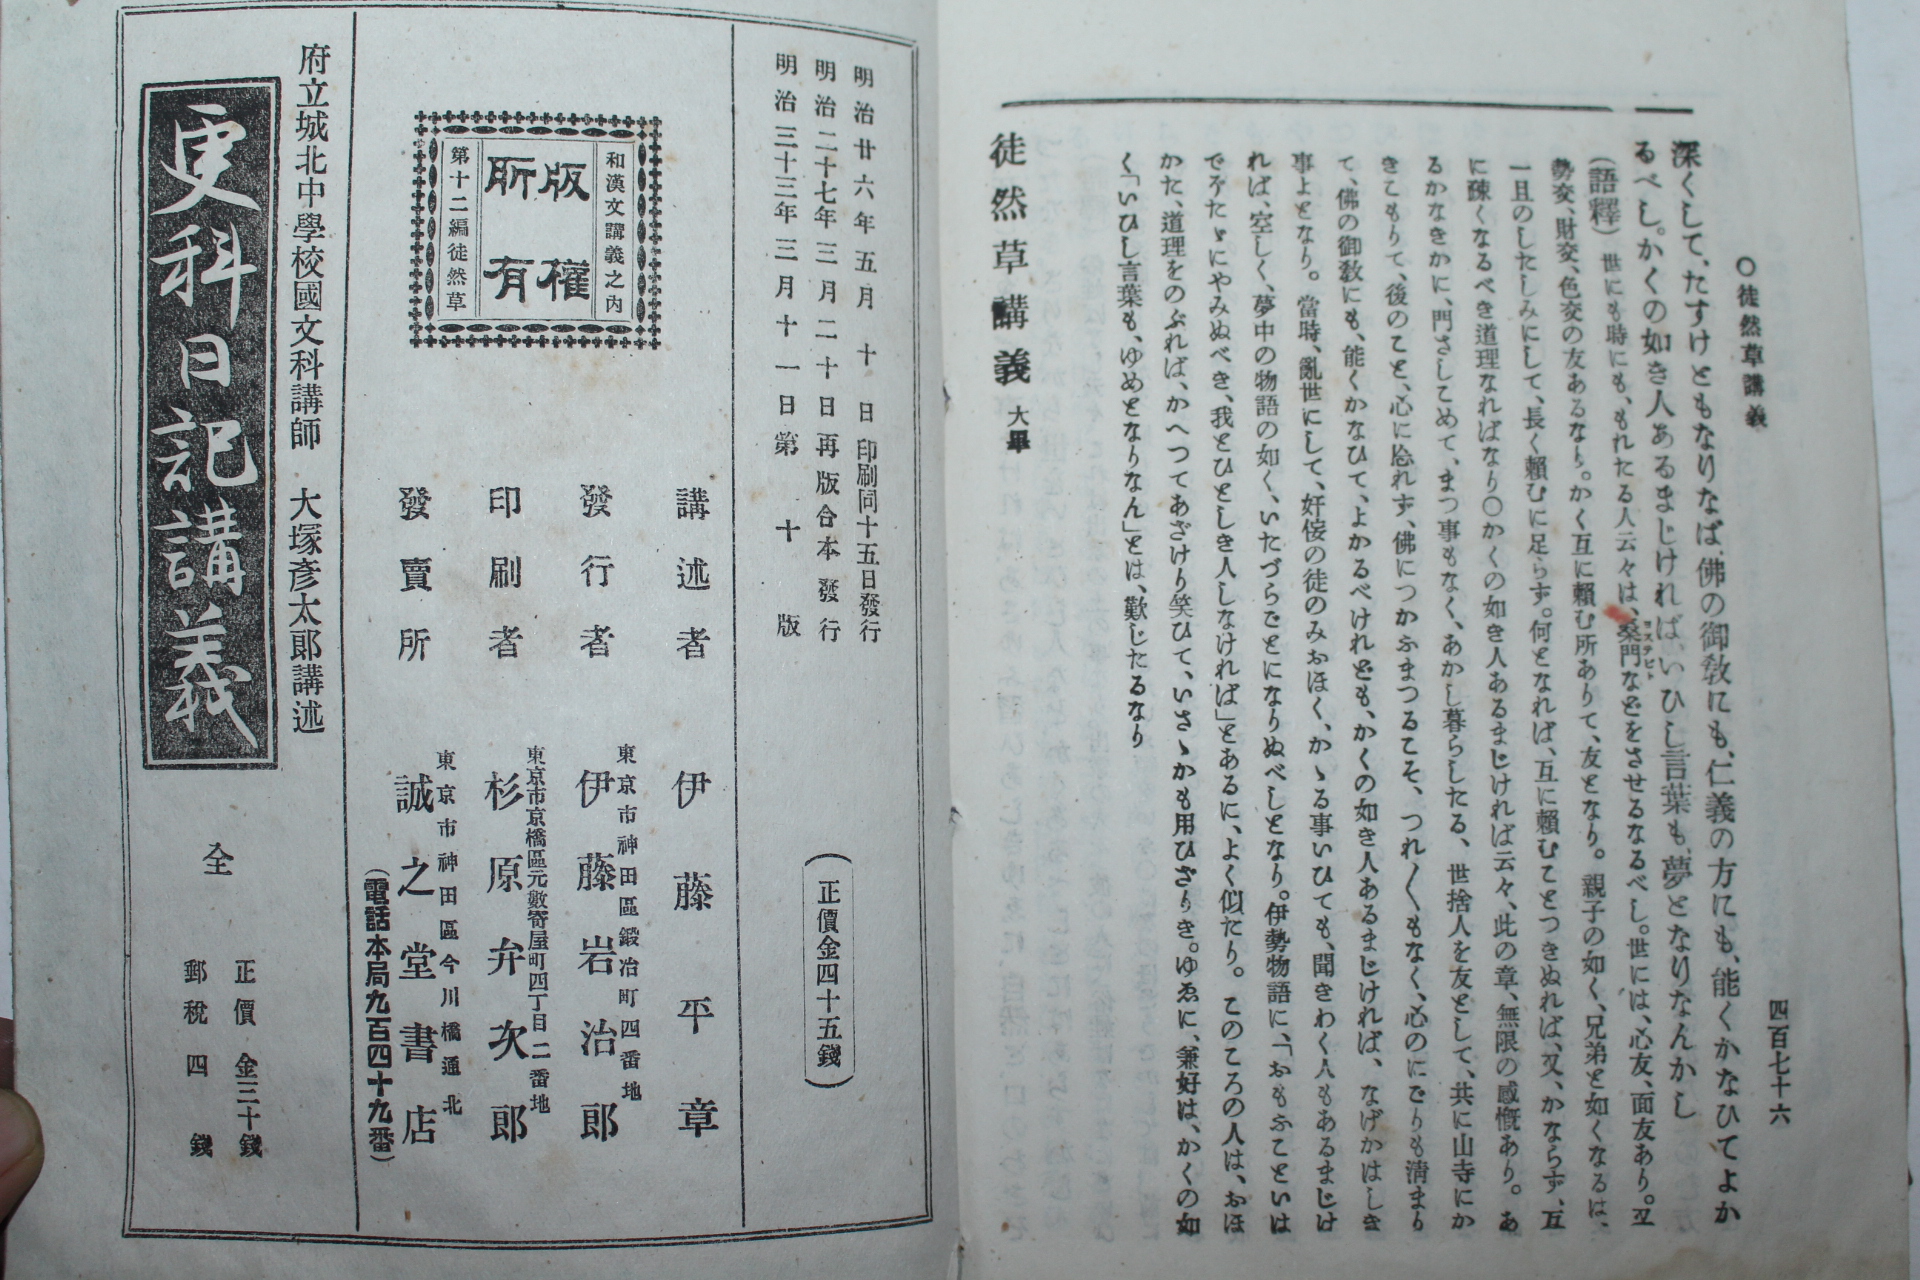 ○徒然草講義
四百七十六
深くして、たすけともなりなば、佛の御教にも、仁義の方にも、能くかなひてよか
るべし。かくの如き人あるまじければ、いひし言葉も、夢となりなんかし
(語釋)世にも時にも、もれたる人云々は、桑門などをさせるなるべし。世には、心友、面友あり。又
ヨステビト
勢交、財交、色交の友あるなり。かく互に賴む所ありて、友となり。親子の如く、兄弟と如くなるは、
一旦のしたしみにして、長く賴むに足らず。何となれば、互に賴むことつきぬれば、又、かならず、互
に疎くなるべき道理なればなり○かくの如き人あるまじければ云々、此の章、無限の感慨あり。あ
るかなきかに、門さしこめて、まつ事もなく、あかし暮らしたる、世捨人を友として、共に山寺にか
きこもりて、後のこと、心に忘れず、佛につかふまつるこそ、つれ〱もなく、心のにごりも淸まり
て、佛の御敎にも、能くかなひて、よかるべけれども、かくの如き人あるまじければ、なげかはしき
事よとなり。當時、亂世にして、奸侫の徒のみおほく、かゝる事いひても、聞きわく人もあるまじけ
れば、空しく、夢中の物語の如く、いたづらごとになりぬべしとなり。伊勢物語に、「おもふこといは
でぞたゞにやみぬべき、我とひとしき人しなければ」とあるに、よく似たり。このころの人は、おほ
かた、道理をのぶれば、かへつてあざけり笑ひて、いさゝかも用ひざりき。ゆゑに、兼好は、かくの如
く「いひし言葉も、ゆめとなりなん」とは、歎じたるなり
徒然草講義 大畢
明治廿六年五月十日印刷同十五日發行
明治二十七年三月二十日再版合本發行
明治三十三年三月十一日第十版
(正價金四十五錢)
和漢文講義之內
版權
所有
第十二編徒然草
講述者 伊藤平章
東京市神田區鍛冶町四番地
發行者 伊藤岩治郎
東京市京橋區元數寄屋町四丁目二番地
印刷者 杉原弁次郎
東京市神田區今川橋通北
發賣所 誠之堂書店
(電話本局九百四十九番)
府立城北中學校國文科講師 大塚彥太郎講述
更科日記講義
全
正價 金三十錢
郵稅 四錢